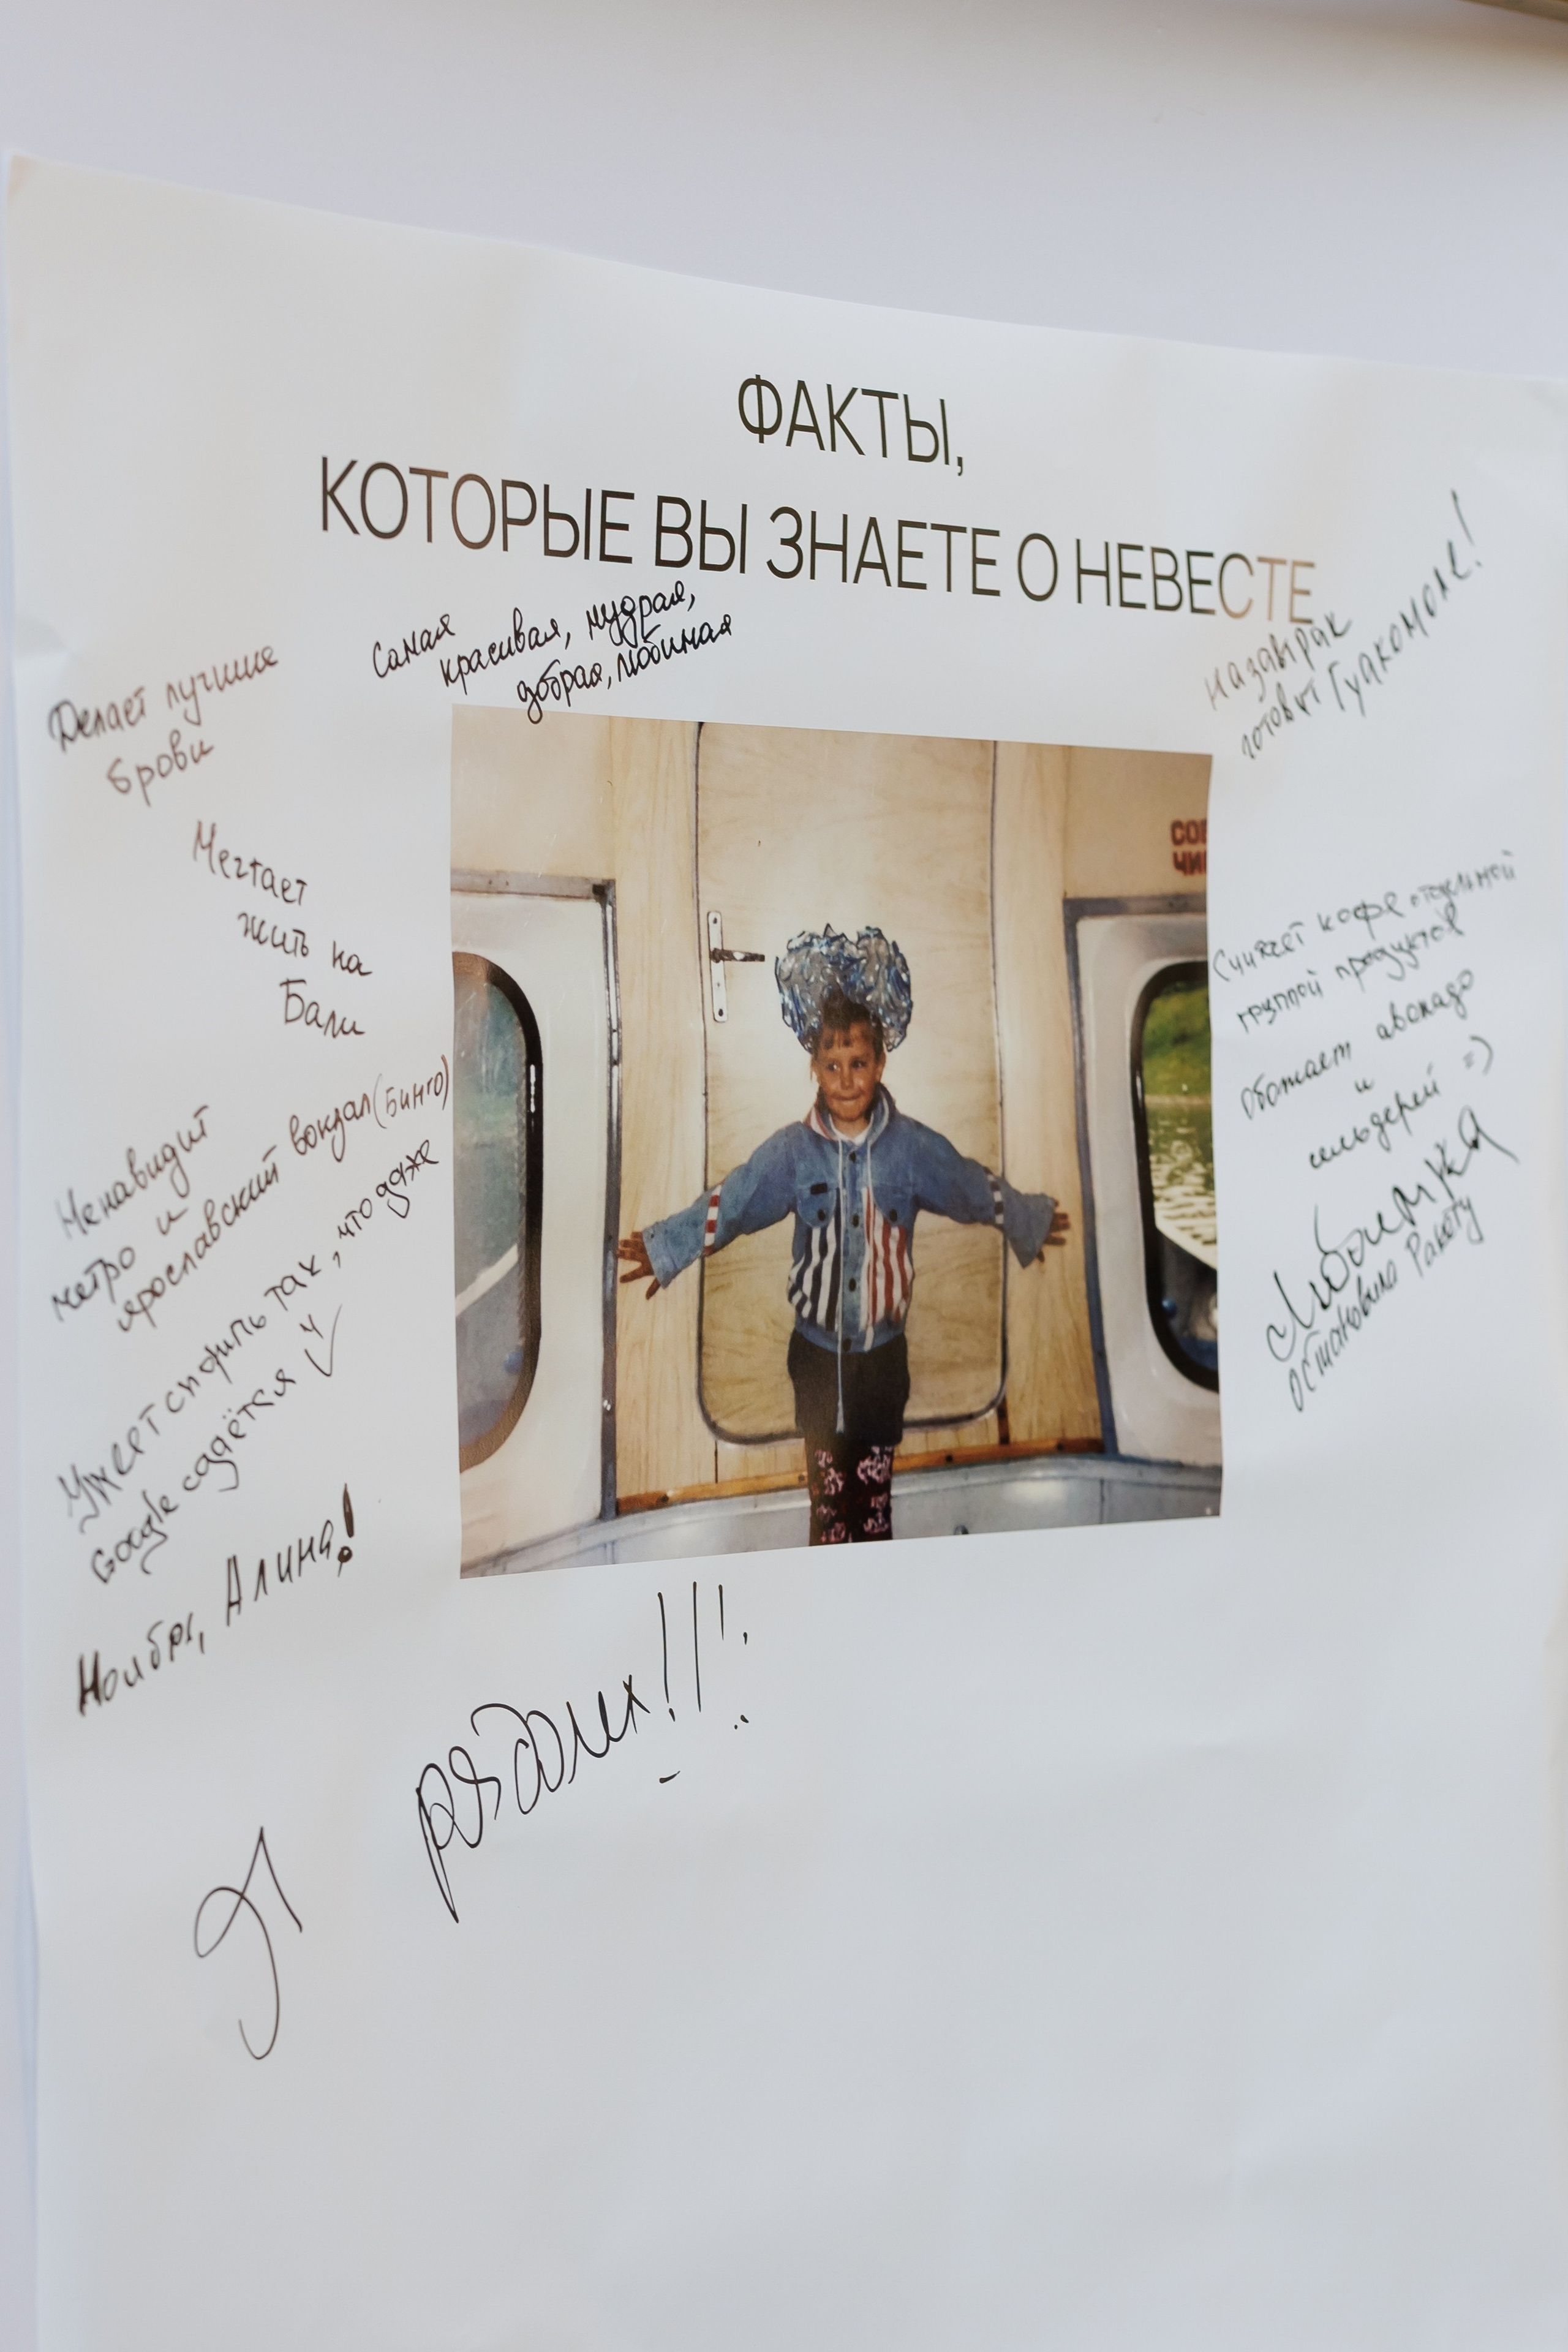 ФАКТЫ,
КОТОРЫЕ ВЫ ЗНАЕТЕ О НЕВЕСТЕ
Самая
красивая, мудрая,
добрая, любимая
Делает лучшие
брови
Мечтает
жить на
Бали
Ненавидит
метро и
ярославский вокзал (Бинго)
Умеет спорить так, что даже
Google сдаётся
Ноябрь, Алина!
Я рядом!!!
На завтрак
готовит Гуакомоле!
Считает кофе отдельной
группой продуктов
Обожает авокадо
и
сельдерей =)
Любимка
остановила Ракоту
СОБ
ЧИ